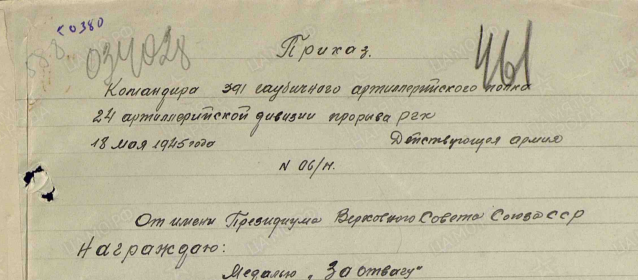 50380
034028
461
Приказ.
Командира 391 гаубичного артиллерийского полка
24 артиллерийской дивизии прорыва РГК
18 мая 1945 года Действующая армия
N 06/н.
От имени Президиума Верховного Совета Союза ССР
Награждаю:
Медалью „За отвагу"